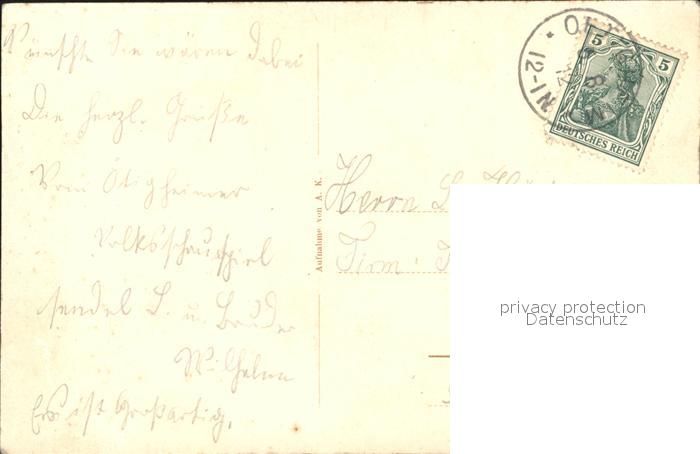 Wünschte Sie wären dabei
Die herzl. Grüße
Vom Ötigheimer
Volksschauspiel
sendet L. u. Bruder
Wilhelm
Es ist Großartig.
Aufnahme von A. K.
Herrn L.
Firm.
12-1N
5 5
DEUTSCHES REICH
privacy protection
Datenschutz